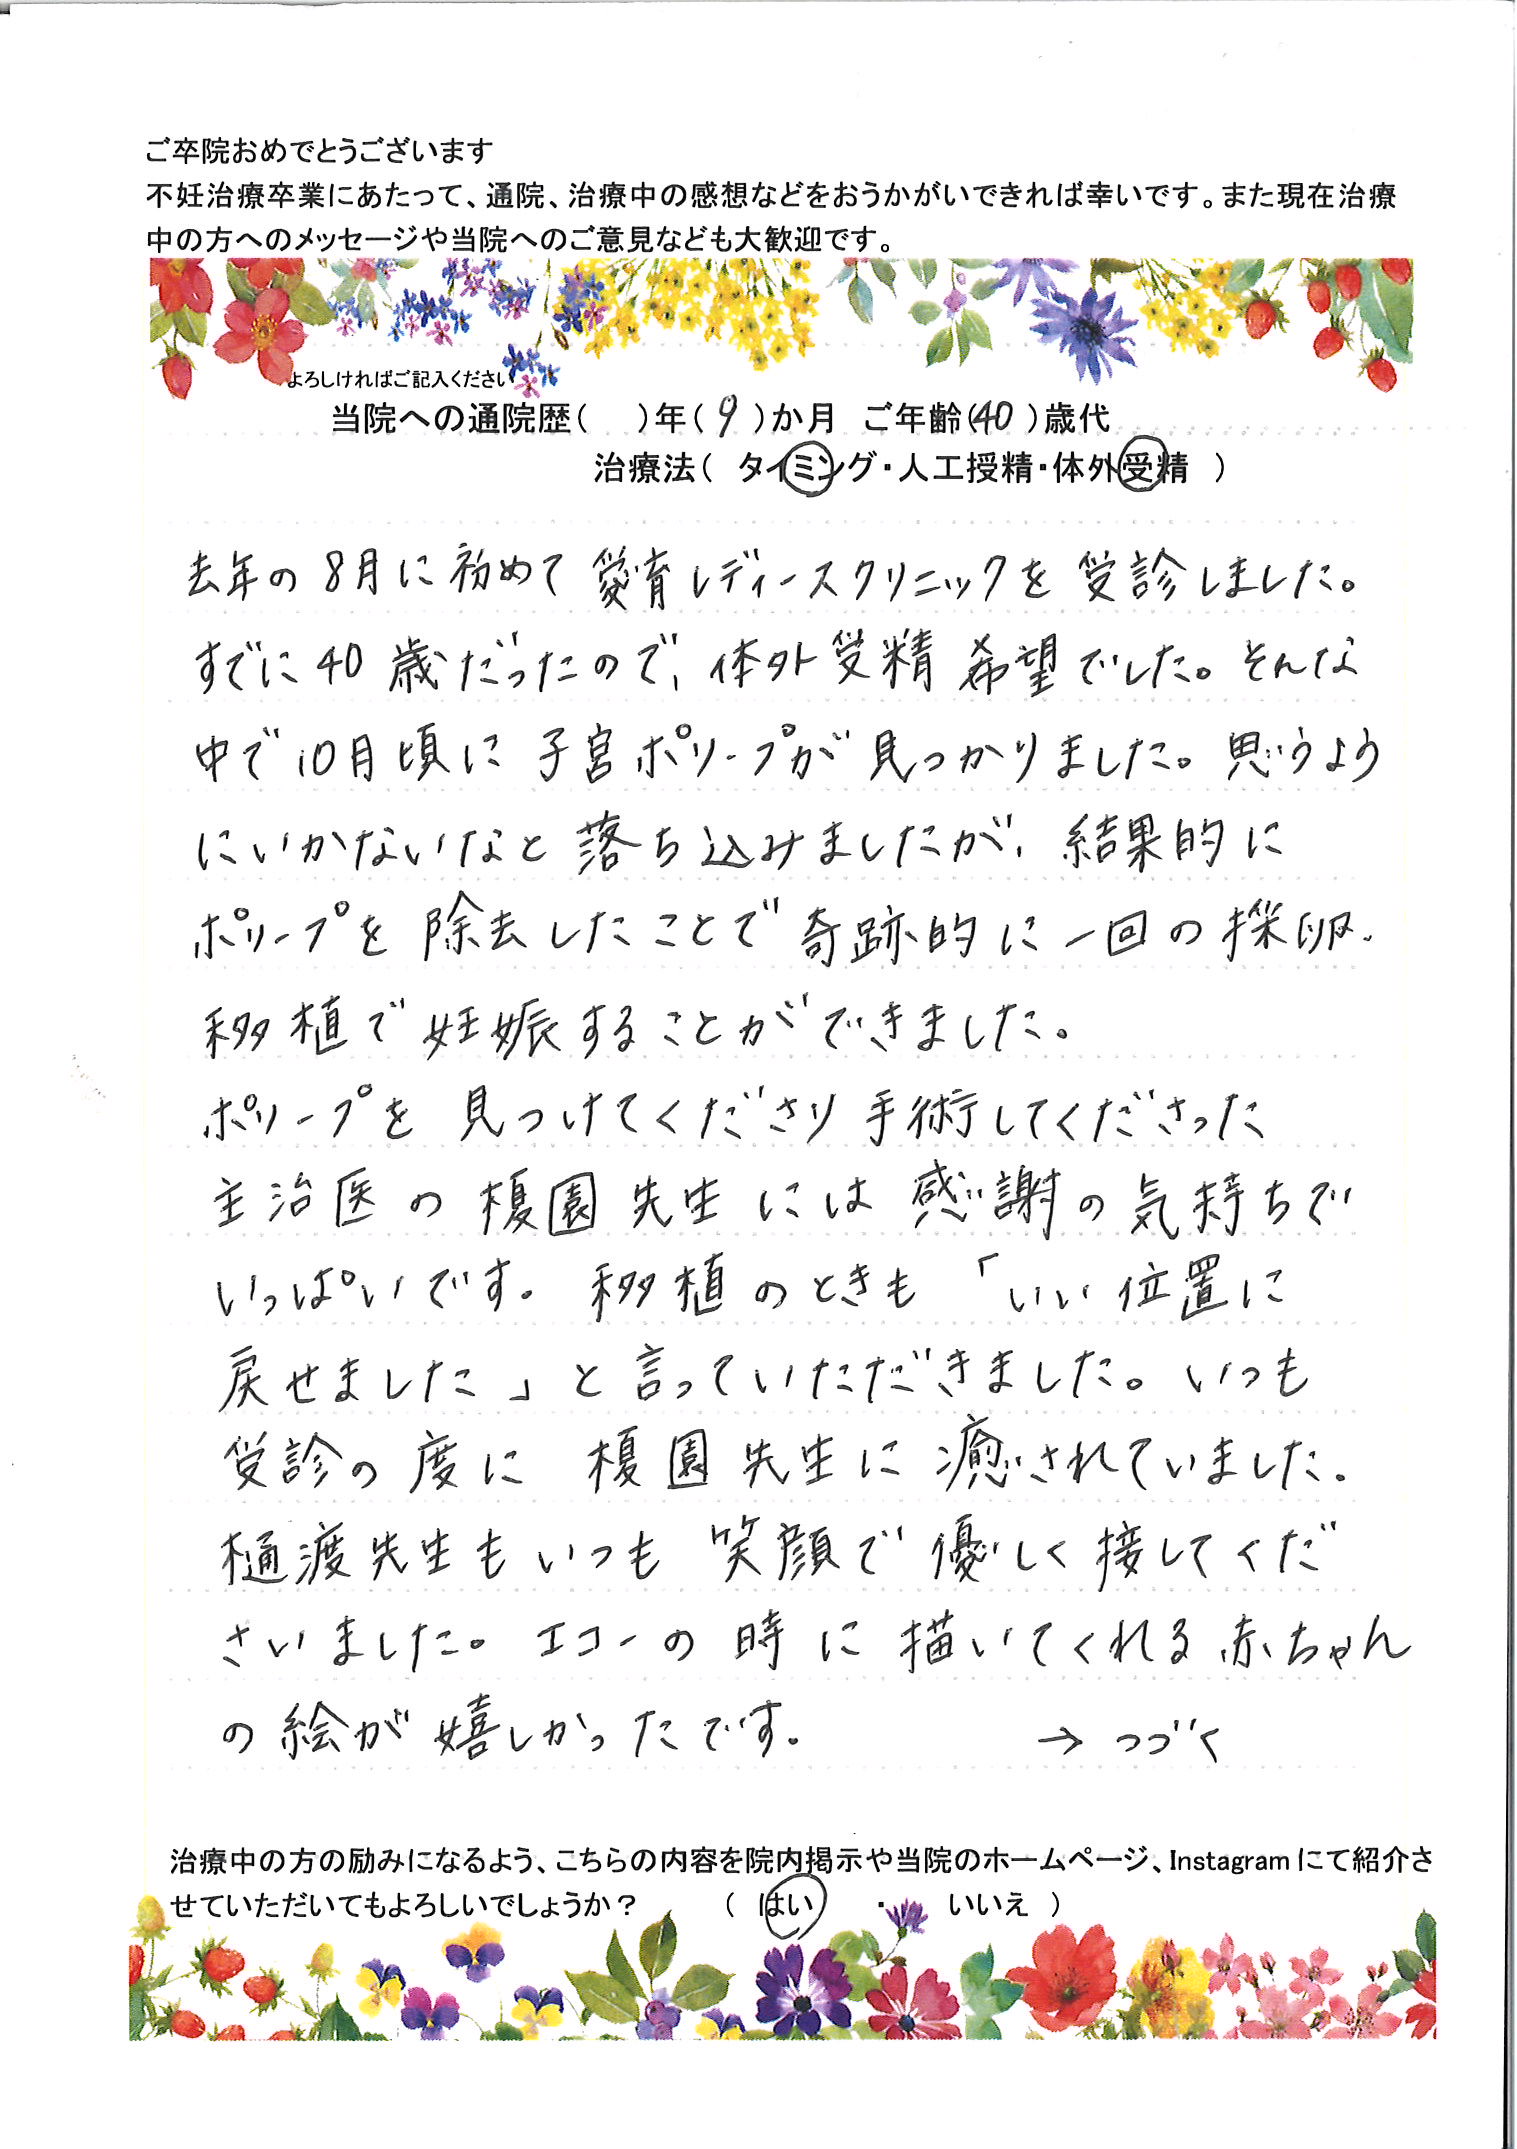 ご卒院おめでとうございます
不妊治療卒業にあたって、通院、治療中の感想などをおうかがいできれば幸いです。また現在治療
中の方へのメッセージや当院へのご意見なども大歓迎です。
よろしければご記入ください
当院への通院歴(　)年(9)か月 ご年齢(40)歳代
治療法( タイミング・人工授精・体外受精 )
去年の8月に初めて愛育レディースクリニックを受診しました。
すでに40歳だったので、体外受精希望でした。そんな
中で10月頃に子宮ポリープが見つかりました。思うよう
にいかないなと落ち込みましたが、結果的に
ポリープを除去したことで奇跡的に一回の採卵、
移植で妊娠することができました。
ポリープを見つけてくださり手術してくださった
主治医の榎園先生には感謝の気持ちで
いっぱいです。移植のときも「いい位置に
戻せました」と言っていただきました。いつも
受診の度に榎園先生に癒されていました。
樋渡先生もいつも笑顔で優しく接してくだ
さいました。エコーの時に描いてくれる赤ちゃん
の絵が嬉しかったです。 → つづく
治療中の方の励みになるよう、こちらの内容を院内掲示や当院のホームページ、Instagramにて紹介さ
せていただいてもよろしいでしょうか? ( はい ・ いいえ )